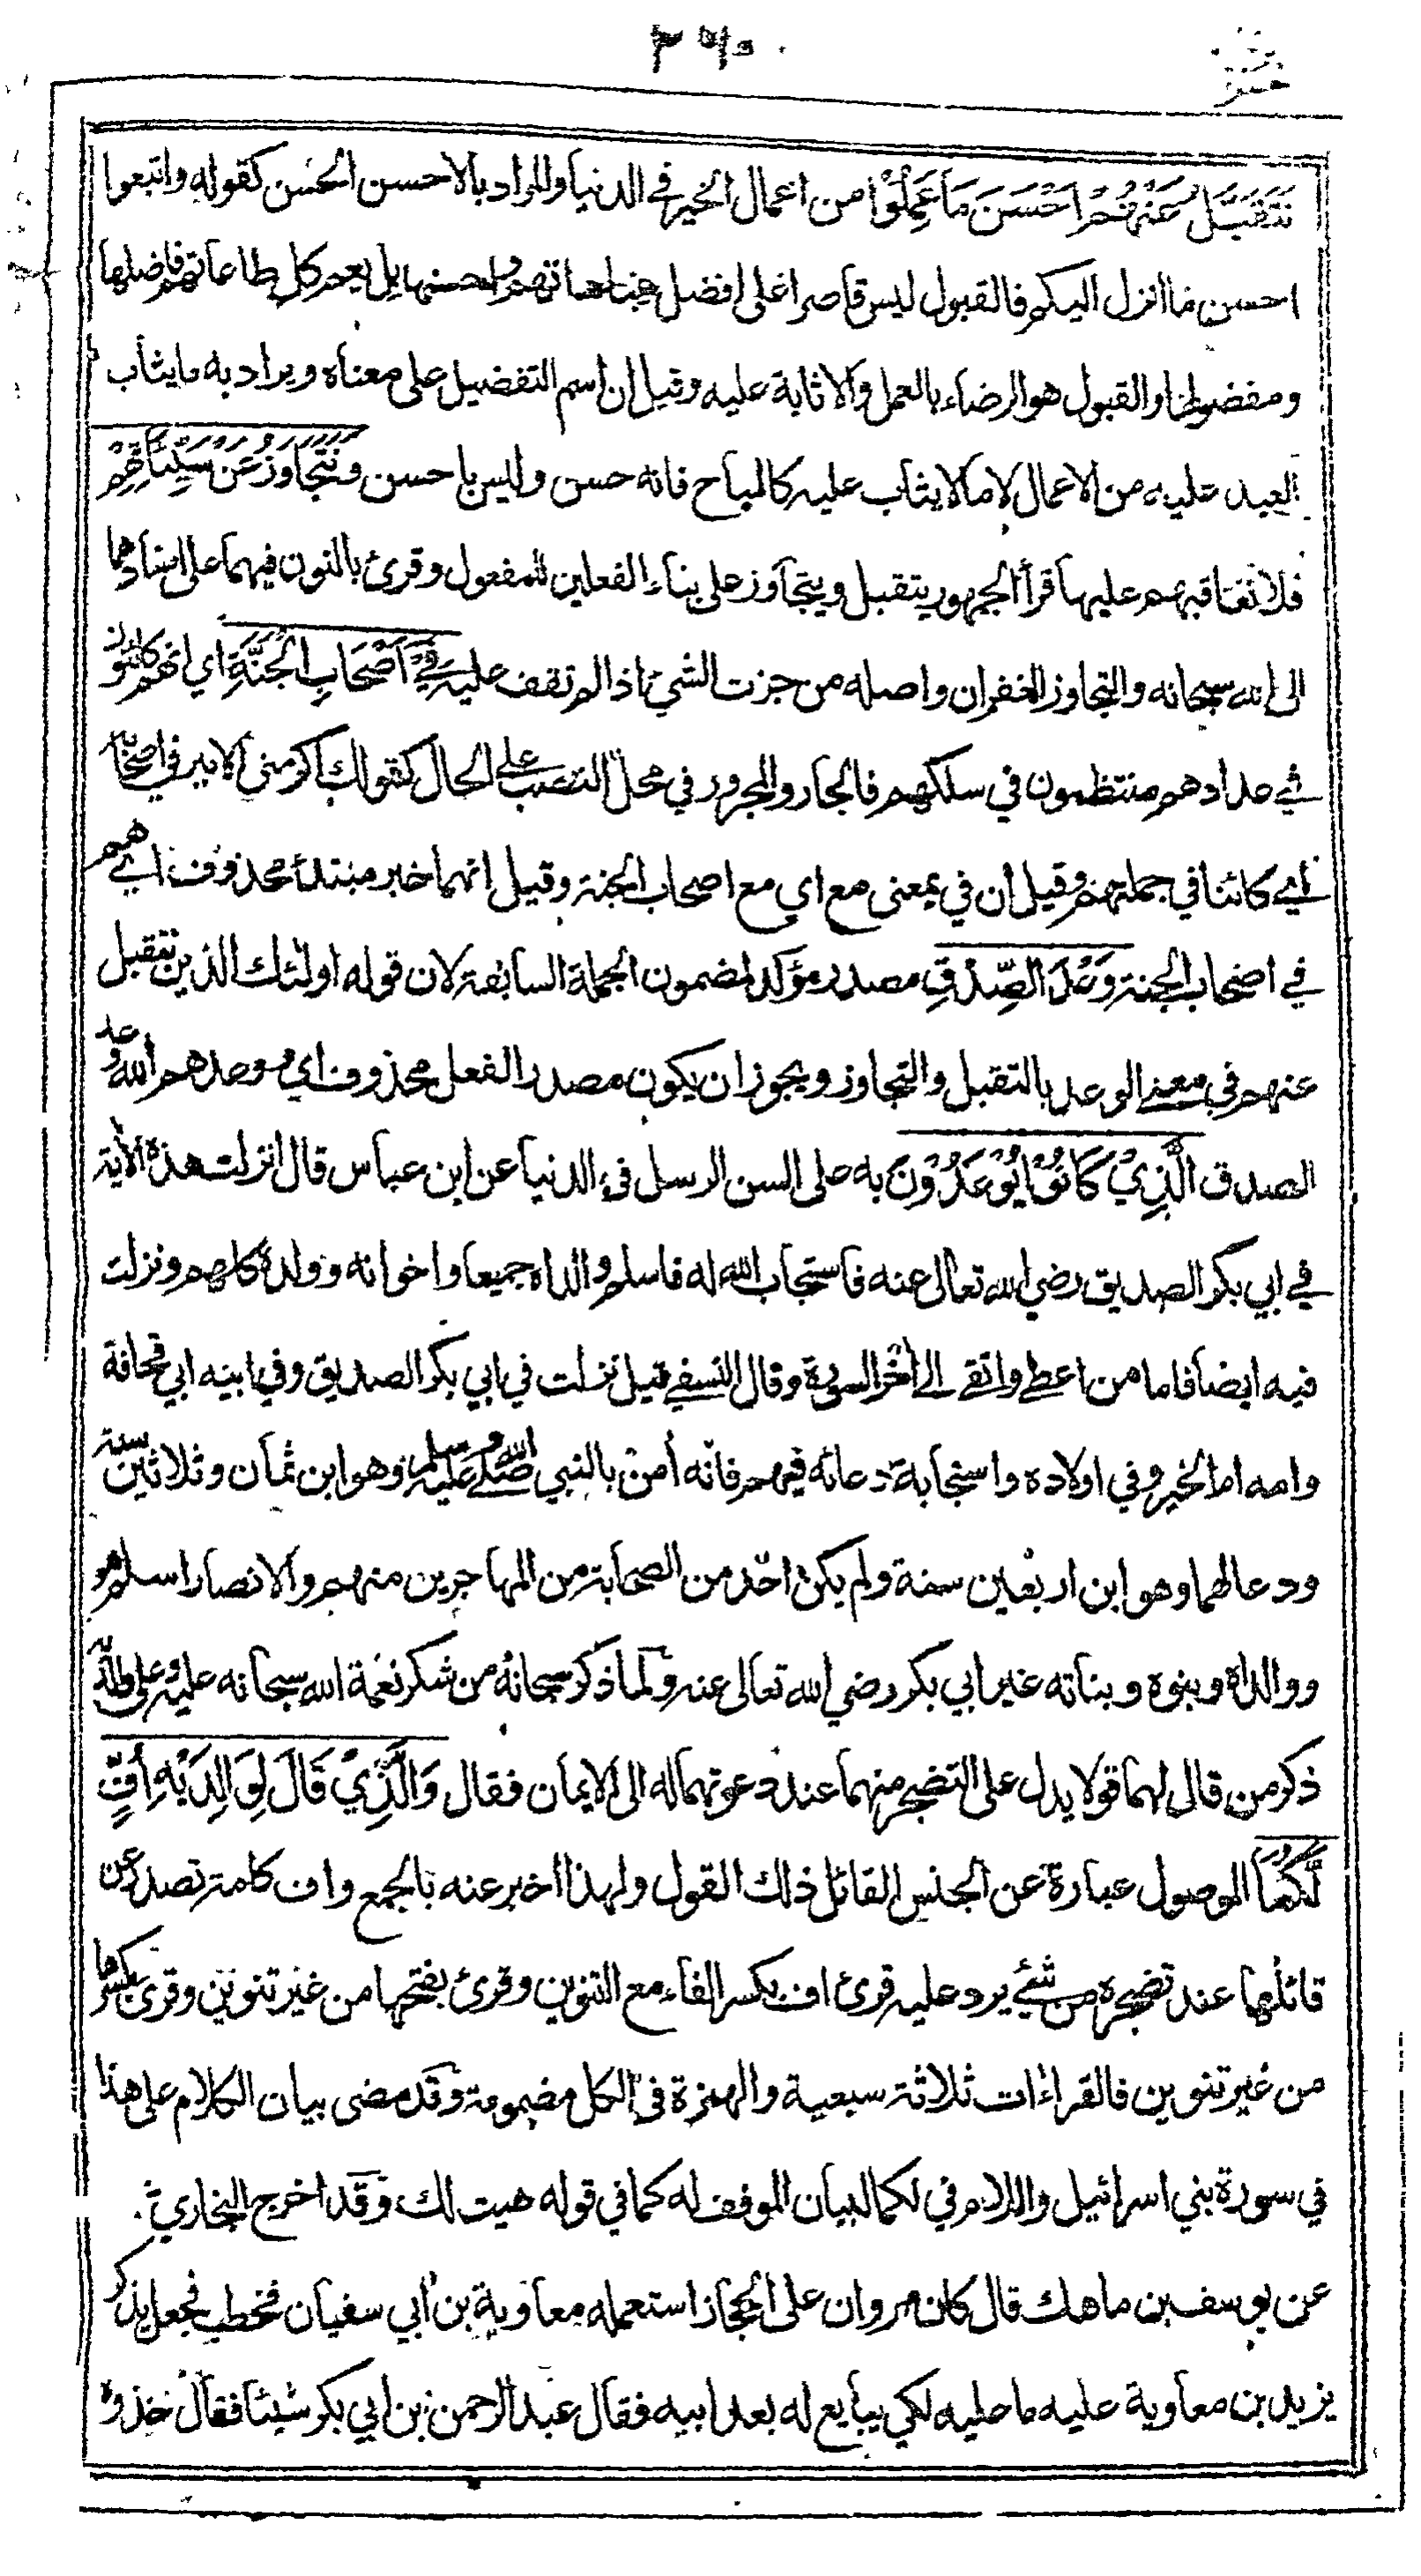 نَتَقَبَّلُ عَنْهُمْ اَحْسَنَ مَا عَمِلُوْا من اعمال الخير في الدنيا والمراد بالاحسن الحسن كقوله واتبعوا
احسن ما انزل اليكم فالقبول ليس قاصرا على افضل عباداتهم واحسنها بل يعم كل طاعاتهم فاضلها
ومفضولها والقبول هو الرضاء بالعمل والاثابة عليه وقيل ان اسم التفضيل على معناه ويراد به ما يثاب
العبد عليه من الاعمال لا ما لا يثاب عليه كالمباح فانه حسن وليس باحسن وَنَتَجَاوَزُ عَنْ سَيِّئَاتِهِمْ
فلا نعاقبهم عليها قرأ الجمهور يتقبل ويتجاوز على بناء الفعلين للمفعول وقرئ بالنون فيهما على اسنادهما
الى الله سبحانه والتجاوز الغفران واصله من جزت الشيء اذا لم تقف عليه فِيْ اَصْحَابِ الْجَنَّةِ اي انهم كائنون
في عدادهم منتظمون في سلكهم فالجار والمجرور في محل النصب على الحال كقولك اكرمني الامير في اصحابه
اي كائنا في جملتهم وقيل ان في بمعنى مع اي مع اصحاب الجنة وقيل انهما خبر مبتدأ محذوف اي هم
في اصحاب الجنة وَعْدَ الصِّدْقِ مصدر مؤكد لمضمون الجملة السابقة لان قوله اولئك الذين نتقبل
عنهم في معنى الوعد بالتقبل والتجاوز ويجوز ان يكون مصدرا لفعل محذوف اي وعدهم الله وعد
الصدق الَّذِيْ كَانُوْا يُوْعَدُوْنَ به على السن الرسل في الدنيا عن ابن عباس قال انزلت هذه الآية
في ابي بكر الصديق رضي الله تعالى عنه فاستجاب الله له فاسلم والداه جميعا واخوانه وولده كلهم ونزلت
فيه ايضا فاما من اعطى واتقى الى آخر السورة وقال النسفي قيل نزلت في ابي بكر الصديق وفي ابيه ابي قحافة
وامه ام الخير وفي اولاده واستجابة دعائه فيهم فانه أمن بالنبي صلى الله عليه وسلم وهو ابن ثمان وثلاثين سنة
ودعا لهما وهو ابن اربعين سنة ولم يكن احد من الصحابة من المهاجرين منهم والانصار اسلم هو
ووالداه وبنوه وبناته غير ابي بكر رضي الله تعالى عنه ولما ذكر سبحانه من شكر نعمة الله سبحانه عليه وعلى والديه
ذكر من قال لهما قولا يدل على التضجر منهما عند دعوتهما له الى الايمان فقال وَالَّذِيْ قَالَ لِوَالِدَيْهِ اُفٍّ
لَّكُمَا الموصول عبارة عن الجنس القائل ذلك القول ولهذا اخبر عنه بالجمع واف كلمة تصدر عن
قائلها عند تضجره من شيء يرد عليه قرئ اف بكسر الفاء مع التنوين وقرئ بفتحها من غير تنوين وقرئ بكسرها
من غير تنوين فالقراءات ثلاثة سبعية والهمزة في الكل مضمومة وقد مضى بيان الكلام على هذا
في سورة بني اسرائيل واللام في لكما لبيان الموفف له كما في قوله هيت لك وقد اخرج البخاري
عن يوسف بن ماهك قال كان مروان على الحجاز استعمله معاوية بن ابي سفيان فخطب فجعل يذكر
يزيد بن معاوية عليه ما عليه لكي يبايع له بعد ابيه فقال عبد الرحمن بن ابي بكر شيئا فقال خذوه